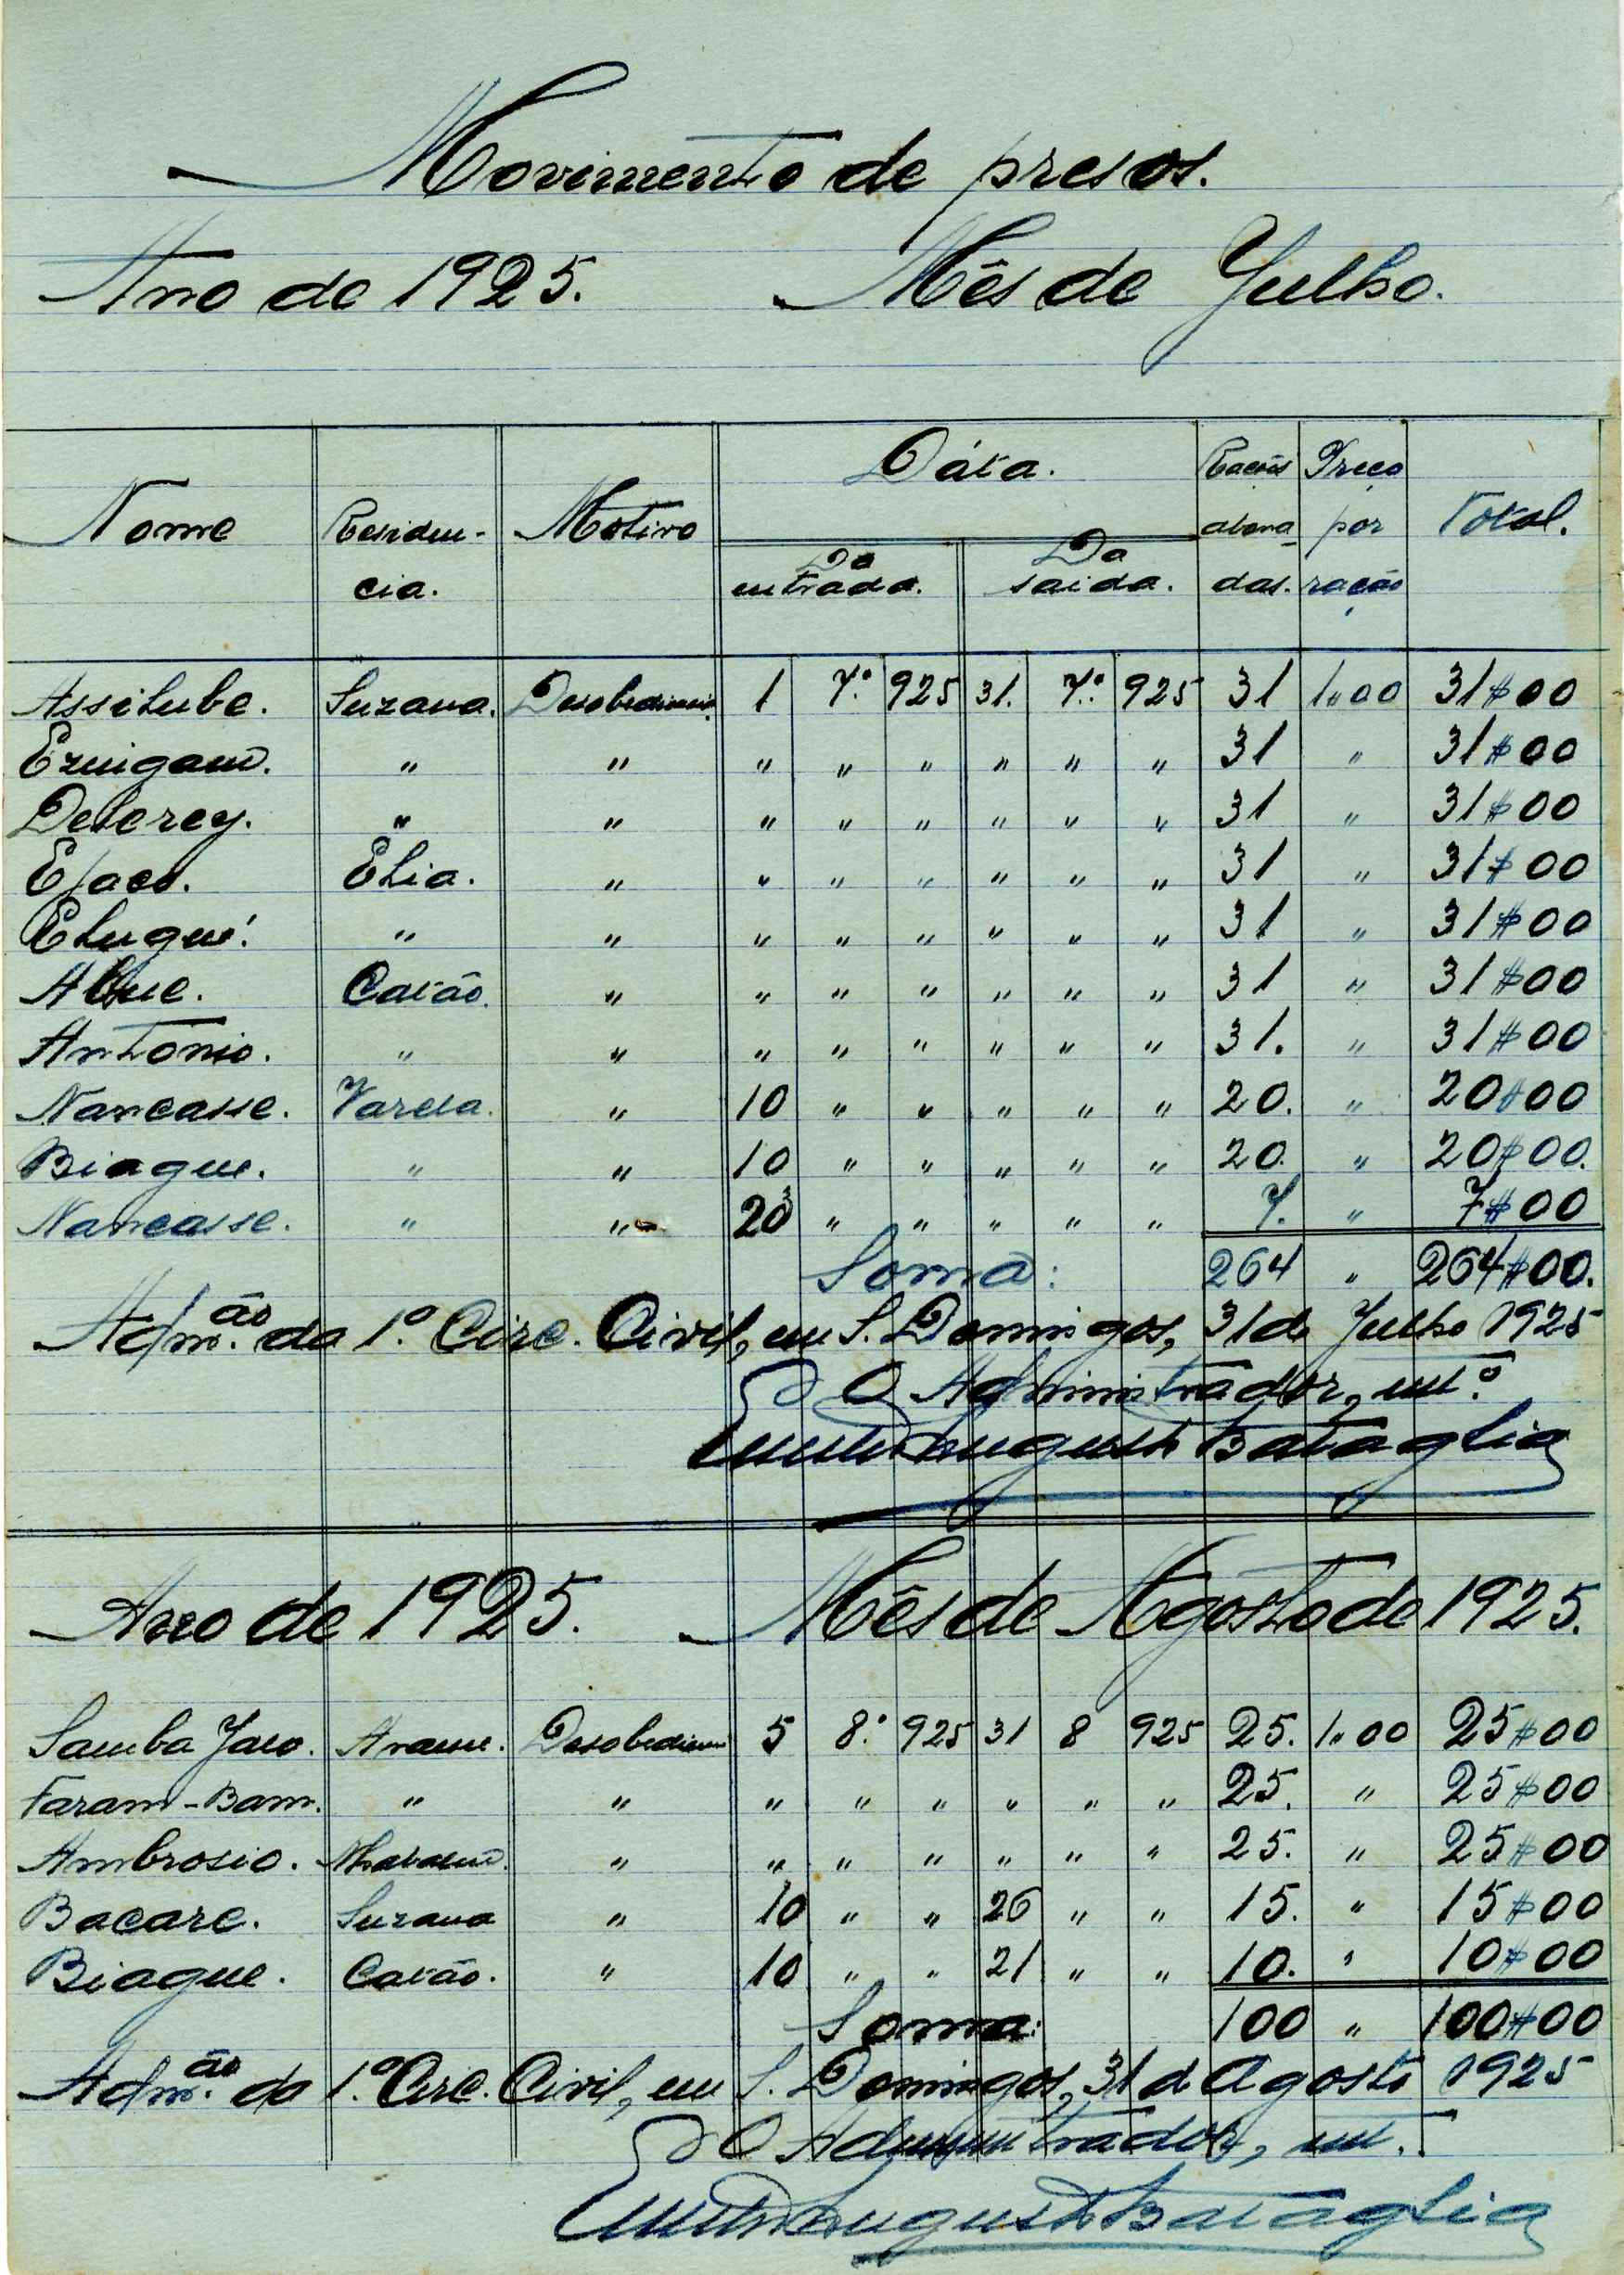 Movimento de presos.
Ano de 1925. Mês de Julho.
Nome Residen- Motivo Dáta. Rações Preço Total.
cia. Da entrada. Da saida. abona- por
das. ração
Assilube. Suzana. Desobediencia 1 7.º 925 31. 7.º 925 31 1$00 31$00
" " " " " " " " 31 " 31$00
" " " " " " " " 31 " 31$00
Ejaco. Elia. " " " " " " " 31 " 31$00
Elugué. " " " " " " " " 31 " 31$00
Catão. " " " " " " " 31 " 31$00
António. " " " " " " " " 31. " 31$00
Nancasse. Varela. " 10 " " " " " 20. " 20$00
Biague. " " 10 " " " " " 20. " 20$00.
Nancasse. " " " " " " " 7. " 7$00
Soma: 264 " 264$00.
Adm.ão da 1.ª Circ. Civil, em S. Domingos, 31 de Julho 1925
O Administrador, int.º
Augusto Bataglia
Ano de 1925. Mês de Agosto de 1925.
Samba Jaco. Arame. Desobediencia 5 8.º 925 31 8 925 25. 1$00 25$00
Faram-Bam. " " " " " " " " 25. " 25$00
Ambrosio. " " " " " " " 25. " 25$00
Bacare. Suzana " 10 " " 26 " " 15. " 15$00
Biague. Catão. " 10 " " 21 " " 10. " 10$00
Soma: 100 " 100$00
Adm.ão da 1.ª Circ. Civil, em S. Domingos, 31 de Agosto 1925
O Administrador, int.
Augusto Bataglia